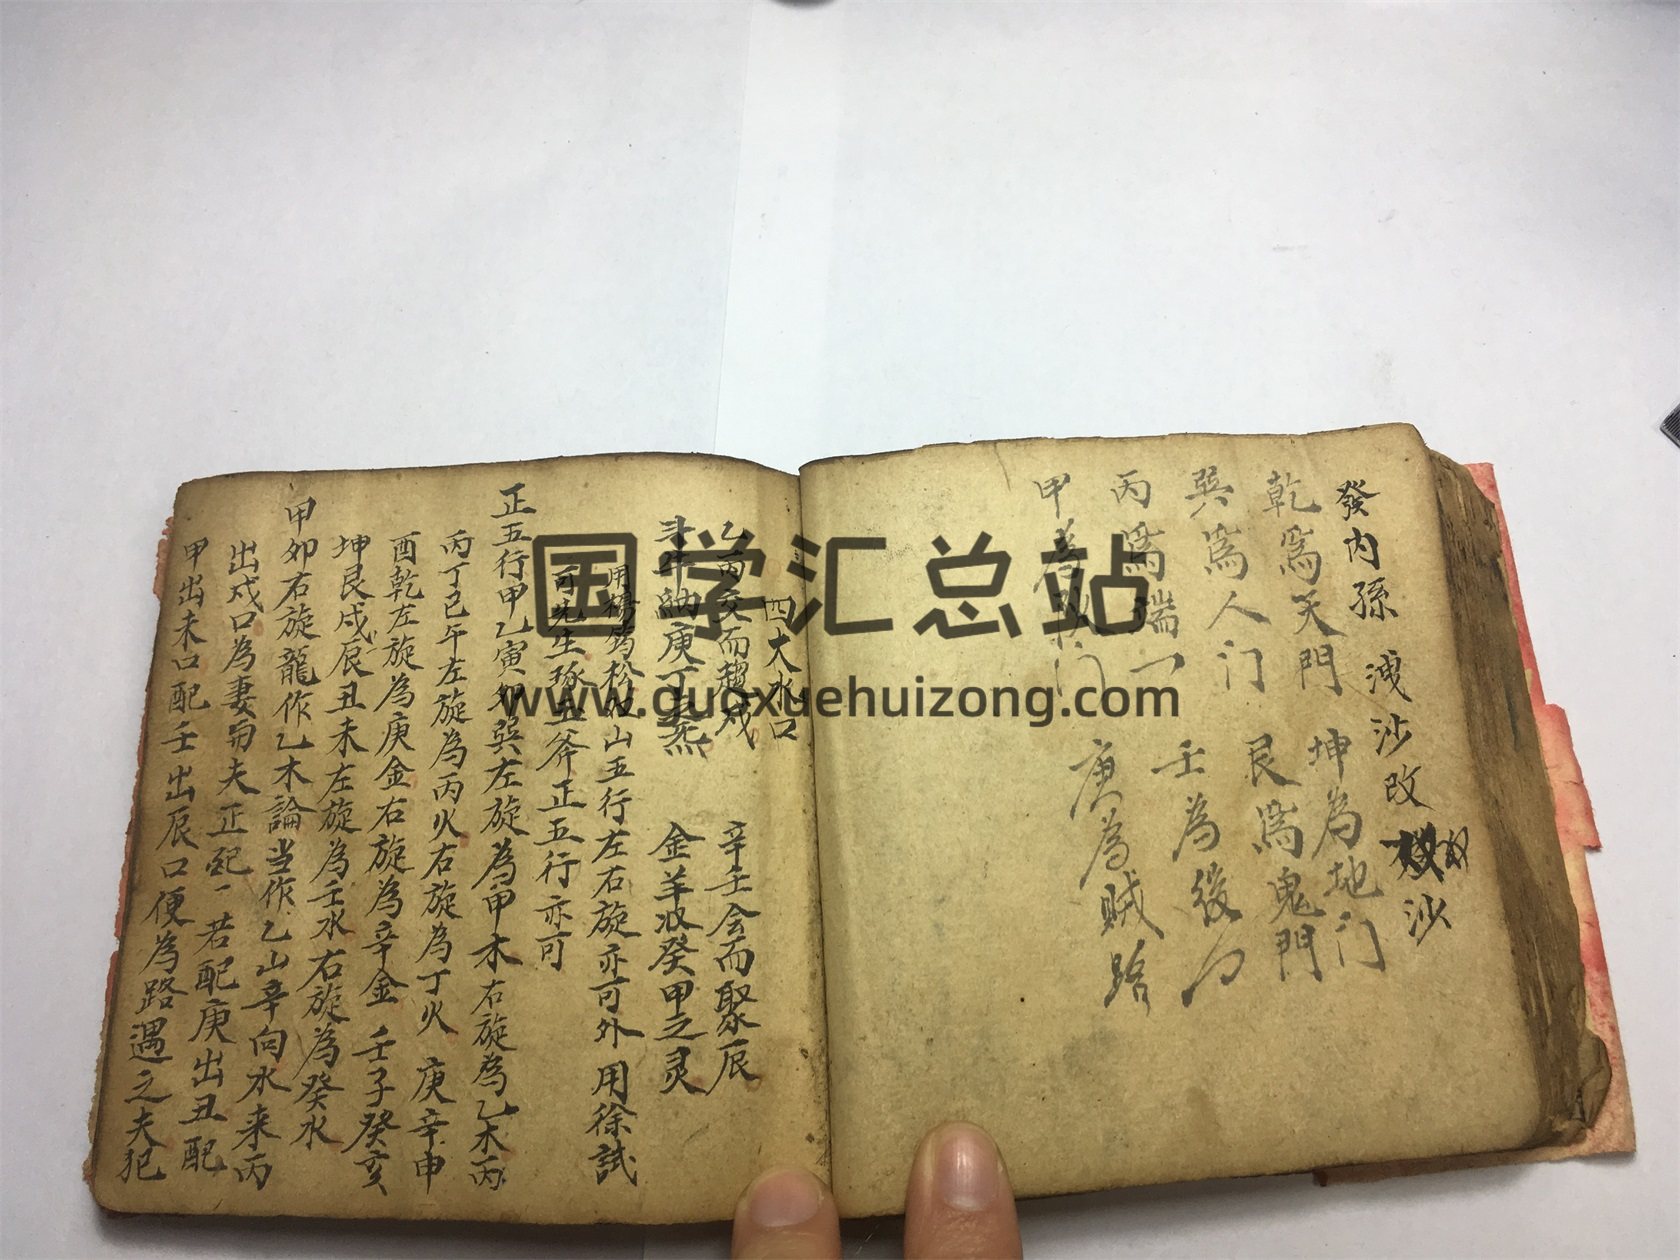 發内孫 洩沙改 沙
乾爲天門 坤為地门
巽爲人门 艮爲鬼門
丙爲端一 壬為後
甲 门 庚為贼路
四大水口
乙丙交而趨戍 辛壬会而聚辰
斗牛納庚丁之炁 金羊收癸甲之灵
用楊筠松 山五行左右旋亦可外用徐試
可先生琢玉斧正五行亦可
正五行甲乙寅夘巽左旋為甲木右旋為乙木丙
丙丁巳午左旋為丙火右旋為丁火 庚辛申
酉乾左旋為庚金右旋為辛金 壬子癸亥
坤艮戍辰丑未左旋為壬水右旋為癸水
甲夘右旋龍作乙木論当作乙山辛向水来丙
出戍口為妻用夫正配一若配庚出丑配
甲出未口配壬出辰口便為路遇之夫犯
国学汇总站
www.guoxuehuizong.com